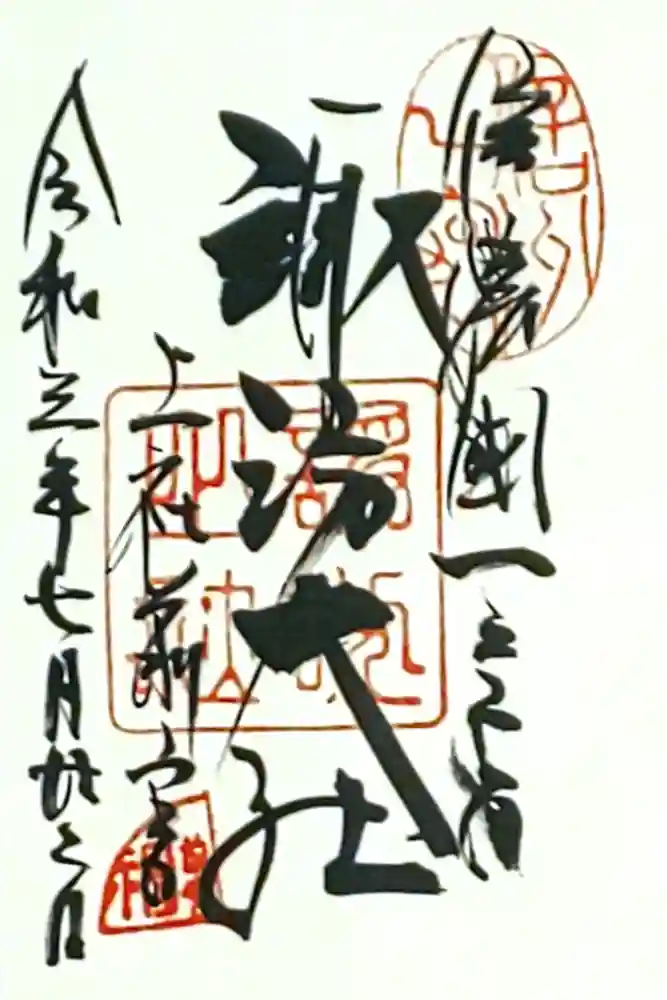 信濃國一之宮
諏訪大社
上社前宮
令和三年七月廿二日